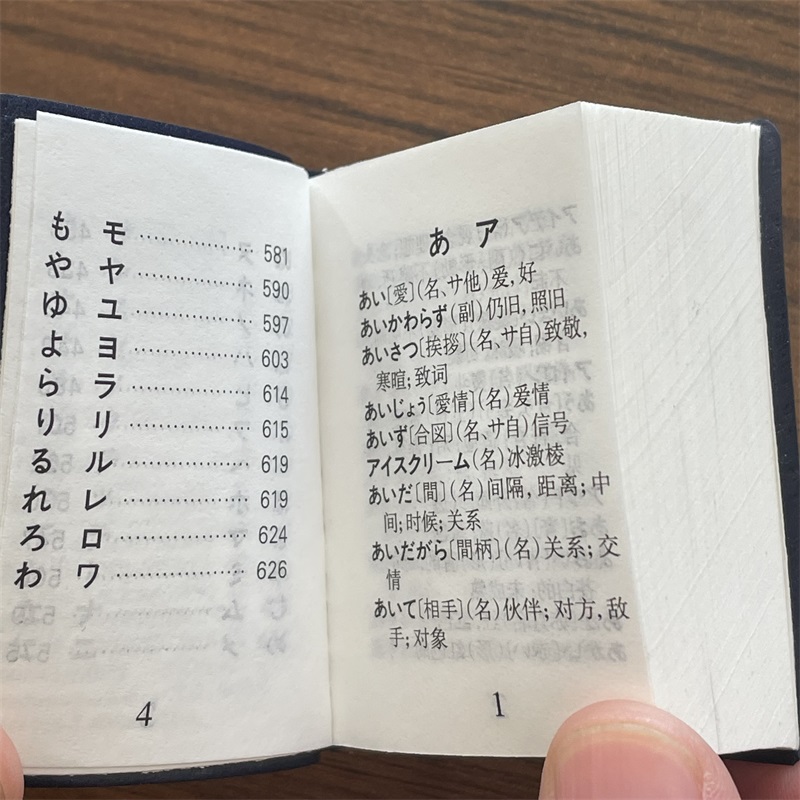 も モ ……………… 581
や ヤ ……………… 590
ゆ ユ ……………… 597
よ ヨ ……………… 603
ら ラ ……………… 614
り リ ……………… 615
る ル ……………… 619
れ レ ……………… 619
ろ ロ ……………… 624
わ ワ ……………… 626
4
あ ア
あい〔愛〕(名、サ他)爱,好
あいかわらず(副)仍旧,照旧
あいさつ〔挨拶〕(名、サ自)致敬,
寒暄;致词
あいじょう〔愛情〕(名)爱情
あいず〔合図〕(名、サ自)信号
アイスクリーム(名)冰激棱
あいだ〔間〕(名)间隔,距离;中
间;时候;关系
あいだがら〔間柄〕(名)关系;交
情
あいて〔相手〕(名)伙伴;对方,敌
手;对象
1